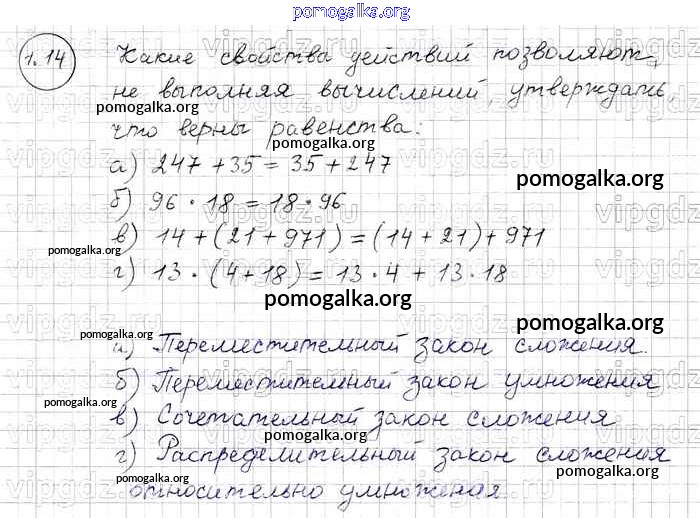 pomogalka.org
1.14 Какие свойства действий позволяют,
не выполняя вычислений, утверждать,
pomogalka.org
что верны равенства:
pomogalka.org
а) 247 + 35 = 35 + 247
pomogalka.org
б) 96 · 18 = 18 · 96
в) 14 + (21 + 971) = (14 + 21) + 971
pomogalka.org
г) 13 · (4 + 18) = 13 · 4 + 13 · 18
pomogalka.org
pomogalka.org
pomogalka.org
а) Переместительный закон сложения.
б) Переместительный закон умножения
pomogalka.org
в) Сочетательный закон сложения
pomogalka.org
г) Распределительный закон сложения
pomogalka.org
pomogalka.org
относительно умножения.
pomogalka.org